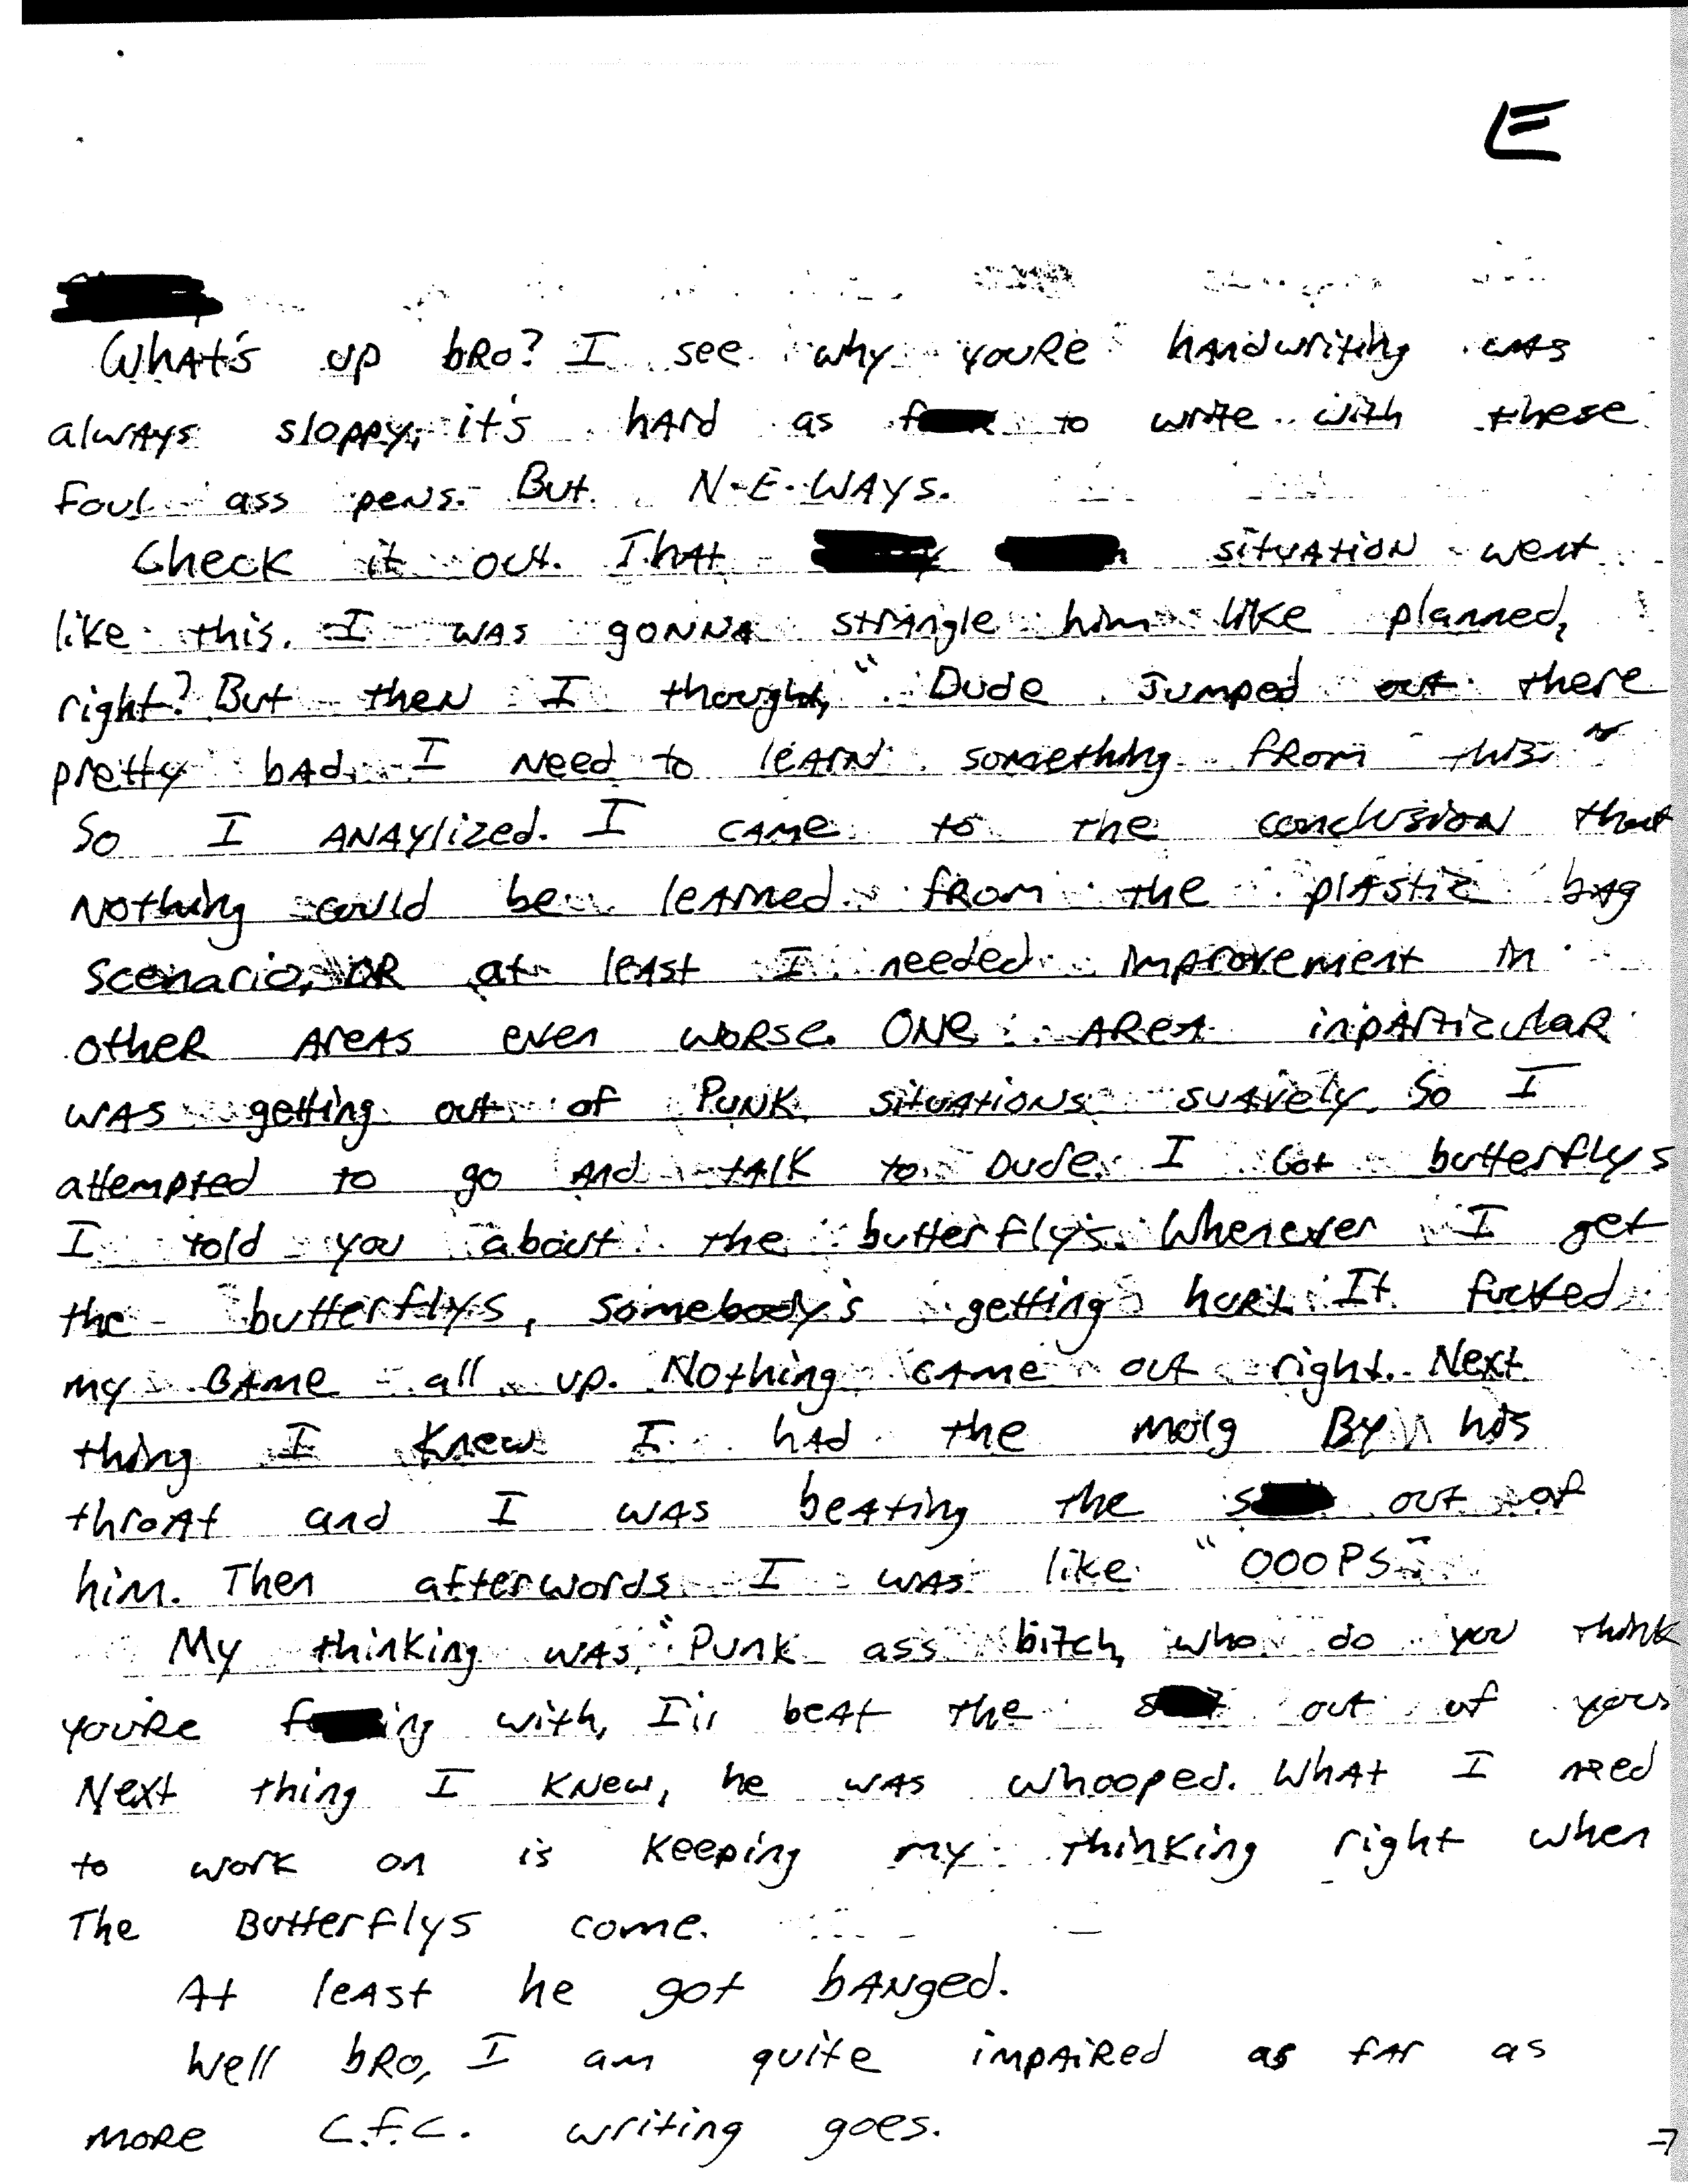 E
What's up bro? I see why youre handwriting was
always sloppy, it's hard as f to write with these
foul ass pens. But N.E.WAYS.
Check it out. That situation went
like this. I was gonna strangle him like planned,
right? But then I thought, "Dude jumped out there
pretty bad. I need to learn something from this"
So I anaylized. I came to the conclusion that
nothing could be learned from the plastic bag
scenario, or at least I needed improvement in
other areas even worse. One area inparticular
was getting out of punk situations suavely. So I
attempted to go and talk to Dude. I got butterflys
I told you about the butterflys. Whenever I get
the butterflys, somebody's getting hurt. It fucked
my game all up. Nothing came out right. Next
thing I knew I had the molg By his
throat and I was beating the s out of
him. Then afterwords I was like "OOOPS"
My thinking was, "Punk ass bitch, who do you think
youre f ing with, I'll beat the s out of you
Next thing I knew, he was whooped. What I need
to work on is keeping my thinking right when
The Butterflys come.
At least he got banged.
Well bro, I am quite impaired as far as
more C.F.C. writing goes.